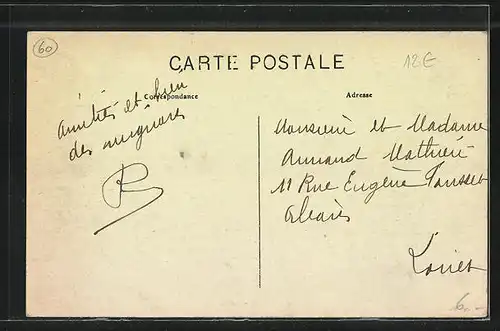 60
CARTE POSTALE
12E
Correspondance
Adresse
amitiés et
des
R
Monsieur et Madame
Armand Mathieu
11 Rue Eugène
Loiret
6.-